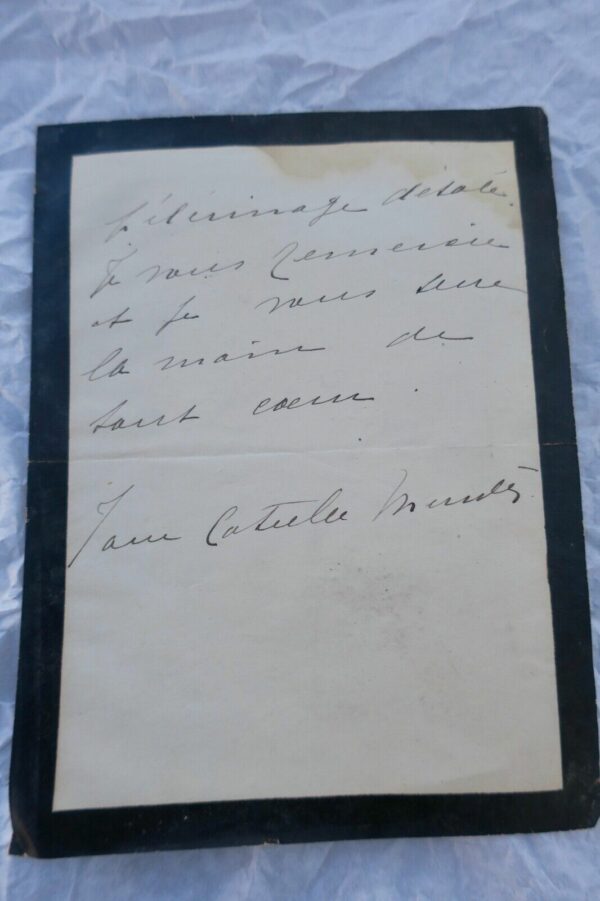 pèlerinage désolé.
Je vous remercie
et je vous serre
la main de
tout coeur.
Jane Catulle Mendès